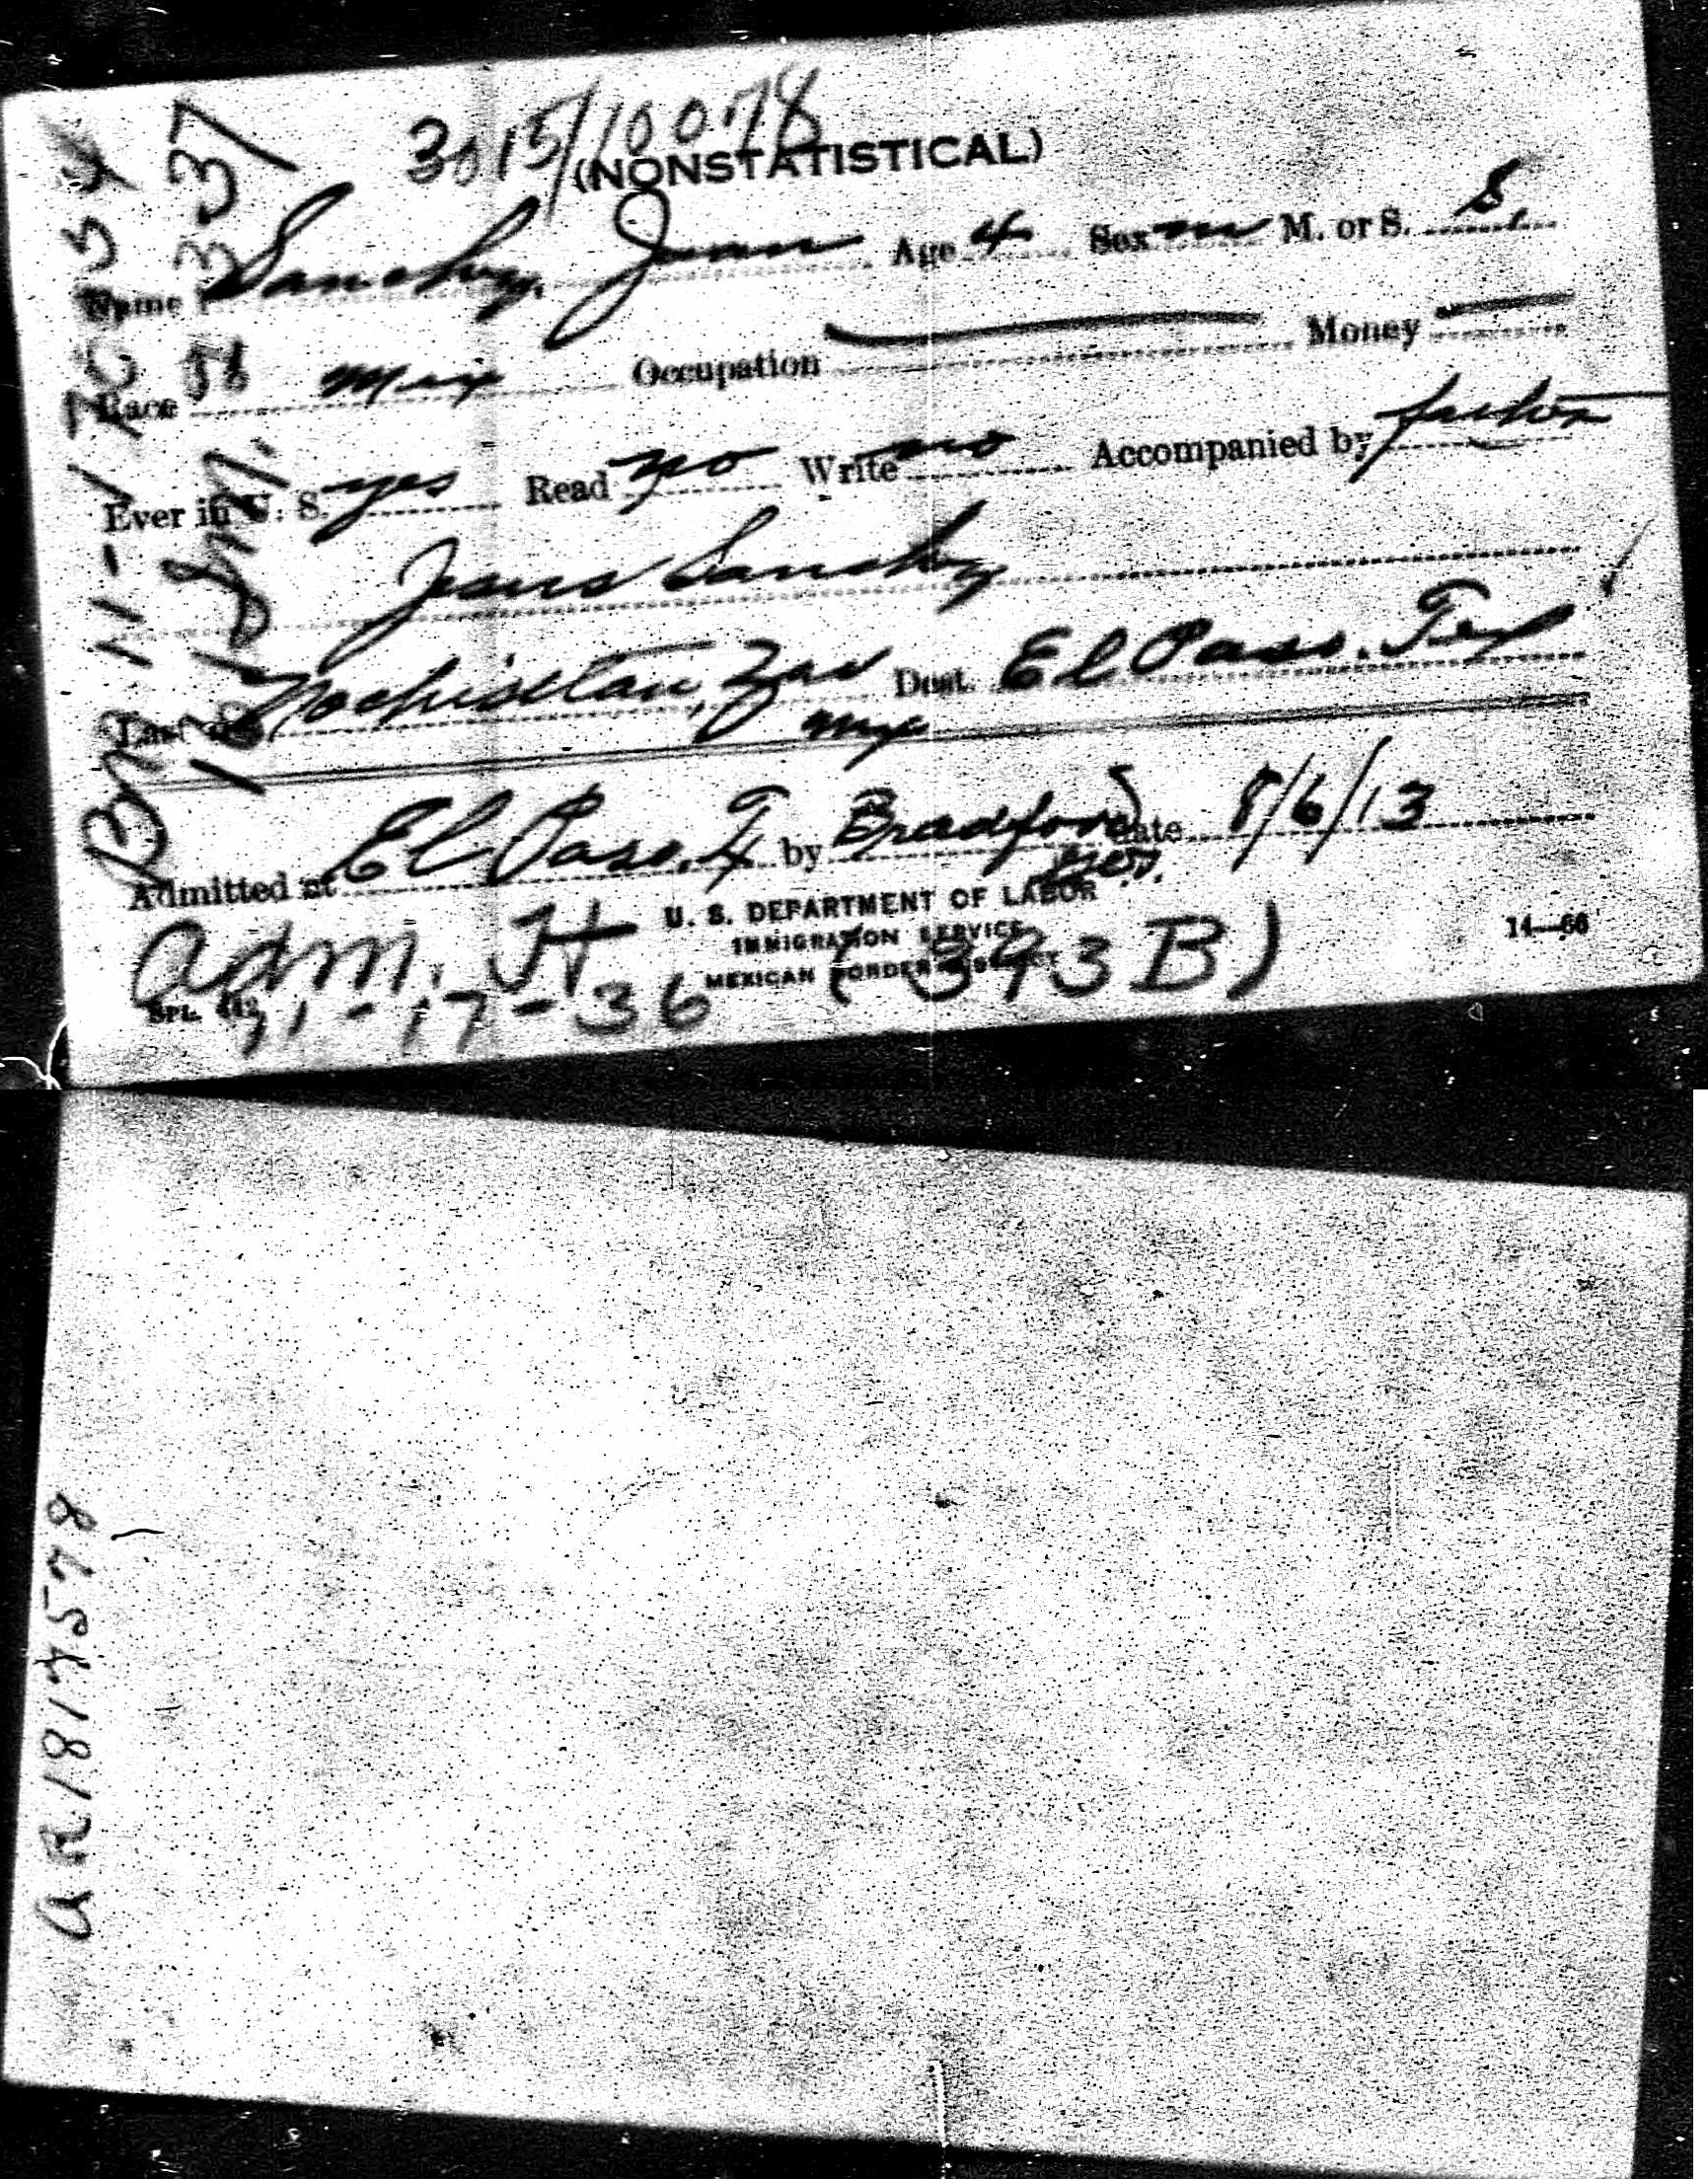 3015/10078
(NONSTATISTICAL)
Name Sanchez, Juan Age 4 Sex m M. or S. S.
Race Mex Occupation — Money —
Ever in U. S. yes Read no Write no Accompanied by father
Jesus Sanchez
Last Nochistlan, Zac Dest. El Paso, Tex
Mex
Admitted at El Paso, Tx by Bradford Date 8/6/13
U. S. DEPARTMENT OF LABOR
IMMIGRATION SERVICE
MEXICAN BORDER DISTRICT
14—66
Adm. H (393B)
SPL. 442
11-17-36
AR1818578